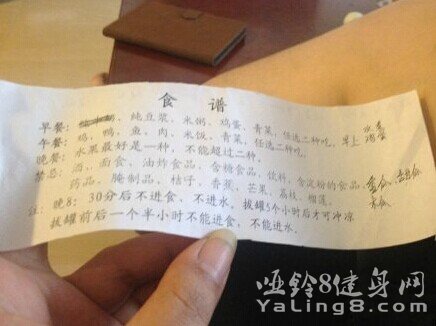 食 谱
早餐: 纯豆浆、米粥、鸡蛋、青菜,任选二种吃,早上 鸡蛋
午餐: 鸡、鸭、鱼、肉、米饭、青菜,任选二种吃。
晚餐: 水果最好是一种,不能超过二种。
禁忌: 酒、面食、油炸食品、含糖食品、饮料、含淀粉的食品、
药品、腌制品、桔子、香蕉、芒果、荔枝、榴莲。
注: 晚8:30分后不进食、不进水,拔罐5个小时后才可冲凉
拔罐前后一个半小时不能进食,不能进水。
哑铃8健身网
YaLing8.com